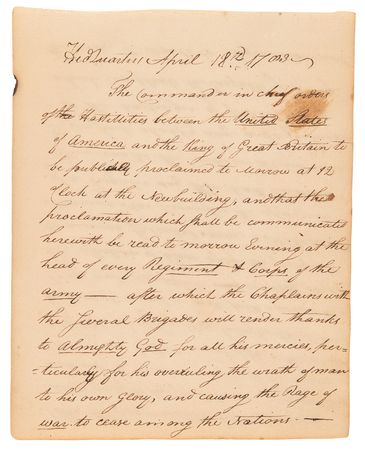 Hed Quarters April 18th 1783
The Commander in chief orders
of the Hostillities between the United States
of America and the King of Great Britain to
be publickly proclaimed to Morrow at 12
Clock at the Newbuilding, and that the
proclamation which shall be communicated
herewith be read to morrow Evening at the
head of every Regiment & Corps of the
army — after which the Chaplains with
the Several Brigades will render thanks
to Almighty God for all his mercies, per=
=ticularly for his overruling the wrath of man
to his own Glory, and causing the Rage of
war to cease among the Nations —